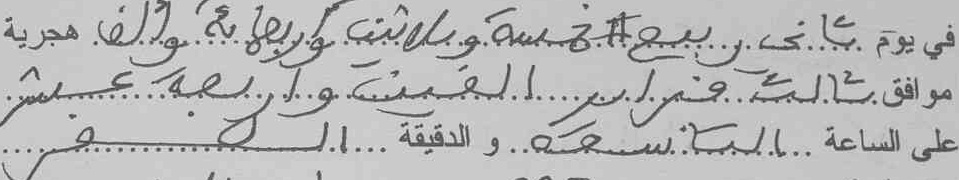 في يوم ثاني ربيع II خمسة وثلاثين وأربعمائة وألف هجرية
موافق ثالث فبراير ألفين وأربعة عشر
على الساعة التاسعة و الدقيقة الصفر